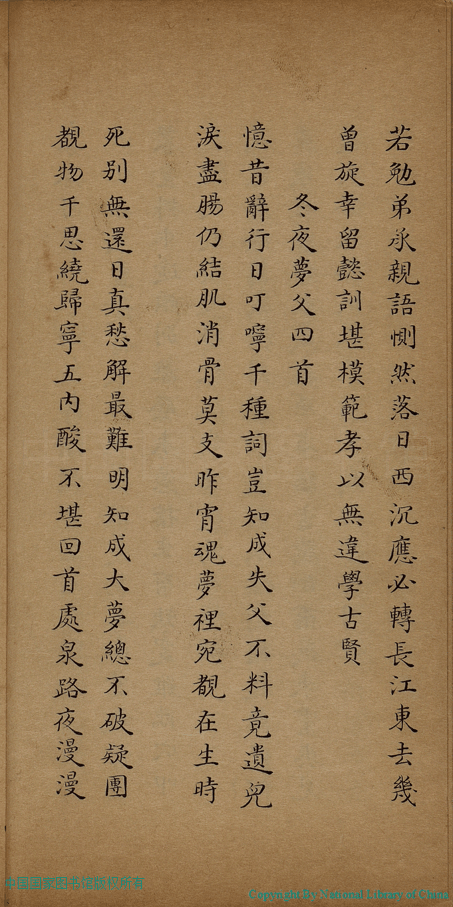 若勉弟承親語惻然落日西沉應必轉長江東去幾
曾旋幸留懿訓堪模範孝以無違學古賢
冬夜夢父四首
憶昔辭行日叮嚀千種詞豈知成失父不料竟遺兒
淚盡腸仍結肌消骨莫支昨宵魂夢裡宛覩在生時
死别無還日真愁解最難明知成大夢總不破疑團
覩物千思繞歸寧五内酸不堪回首處泉路夜漫漫
中国国家图书馆版权所有
Copyright By National Library of China